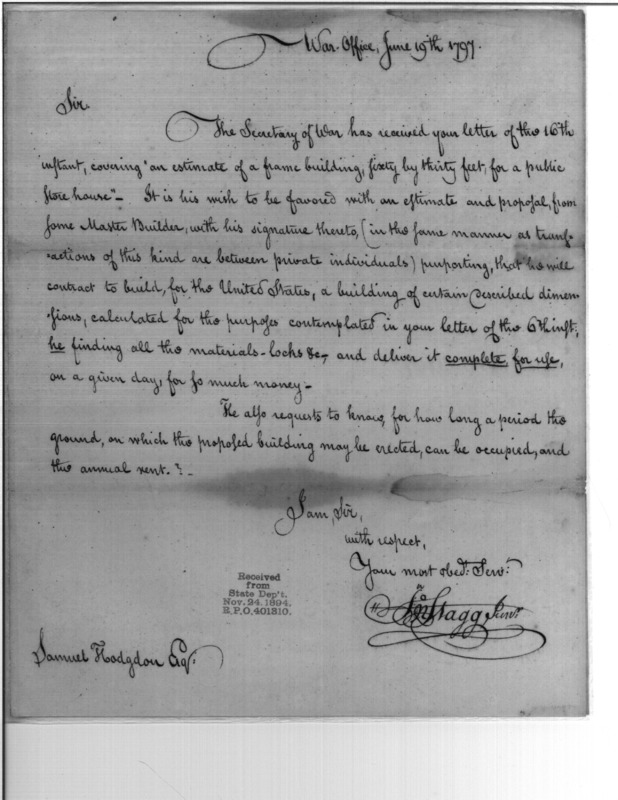 War Office, June 19th 1797.
Sir.
The Secretary of War has received your letter of the 16th
instant, covering "an estimate of a frame building, sixty by thirty feet, for a public
store house"- It is his wish to be favored with an estimate and proposal, from
some Master Builder, with his signature thereto, (in the same manner as trans-
-actions of this kind are between private individuals) purporting, that he will
contract to build, for the United States, a building of certain described dimen-
sions, calculated for the purposes contemplated in your letter of the 6th inst.
he finding all the materials - locks &c, and deliver it complete, for use,
on a given day, for so much money -
He also requests to know, for how long a period the
ground, on which the proposed building may be erected, can be occupied, and
the annual rent. ? -
I am, Sir,
with respect,
Your most obedt. Servt.
Jno Stagg Junr.
Received
from
State Dep't.
Nov. 24. 1894.
R.P.O. 401310.
Samuel Hodgdon Esqr.